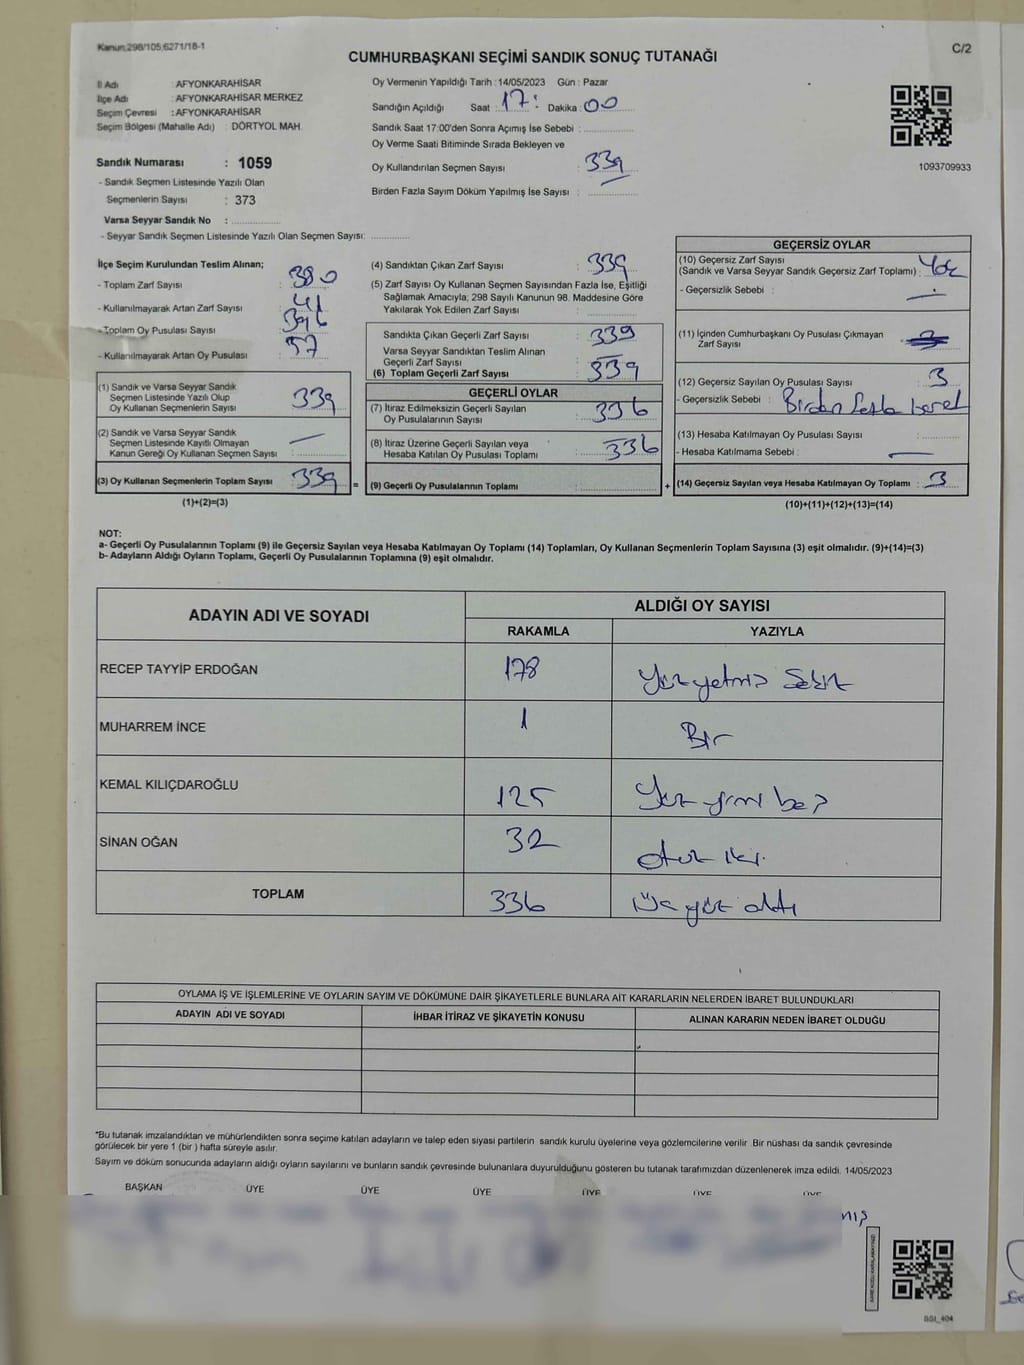 Kanun;298/105;6271/18-1
C/2
CUMHURBAŞKANI SEÇİMİ SANDIK SONUÇ TUTANAĞI
İl Adı : AFYONKARAHİSAR
İlçe Adı : AFYONKARAHİSAR MERKEZ
Seçim Çevresi : AFYONKARAHİSAR
Seçim Bölgesi (Mahalle Adı) : DÖRTYOL MAH.
Sandık Numarası : 1059
- Sandık Seçmen Listesinde Yazılı Olan
Seçmenlerin Sayısı : 373
Varsa Seyyar Sandık No :
- Seyyar Sandık Seçmen Listesinde Yazılı Olan Seçmen Sayısı:
Oy Vermenin Yapıldığı Tarih : 14/05/2023 Gün : Pazar
Sandığın Açıldığı Saat : 17: Dakika : 00
Sandık Saat 17:00'den Sonra Açımış İse Sebebi :
Oy Verme Saati Bitiminde Sırada Bekleyen ve
Oy Kullandırılan Seçmen Sayısı : 339
Birden Fazla Sayım Döküm Yapılmış İse Sayısı :
1093709933
İlçe Seçim Kurulundan Teslim Alınan;
- Toplam Zarf Sayısı : 380
- Kullanılmayarak Artan Zarf Sayısı : 41
- Toplam Oy Pusulası Sayısı : 396
- Kullanılmayarak Artan Oy Pusulası : 57
(1) Sandık ve Varsa Seyyar Sandık
Seçmen Listesinde Yazılı Olup
Oy Kullanan Seçmenlerin Sayısı : 339
(2) Sandık ve Varsa Seyyar Sandık
Seçmen Listesinde Kayıtlı Olmayan
Kanun Gereği Oy Kullanan Seçmen Sayısı : —
(3) Oy Kullanan Seçmenlerin Toplam Sayısı : 339 =
(1)+(2)=(3)
(4) Sandıktan Çıkan Zarf Sayısı : 339
(5) Zarf Sayısı Oy Kullanan Seçmen Sayısından Fazla İse, Eşitliği
Sağlamak Amacıyla; 298 Sayılı Kanunun 98. Maddesine Göre
Yakılarak Yok Edilen Zarf Sayısı :
Sandıkta Çıkan Geçerli Zarf Sayısı : 339
Varsa Seyyar Sandıktan Teslim Alınan
Geçerli Zarf Sayısı : —
(6) Toplam Geçerli Zarf Sayısı : 339
GEÇERLİ OYLAR
(7) İtiraz Edilmeksizin Geçerli Sayılan
Oy Pusulasının Sayısı : 336
(8) İtiraz Üzerine Geçerli Sayılan veya
Hesaba Katılan Oy Pusulası Toplamı : 336
(9) Geçerli Oy Pusulalarının Toplamı : +
GEÇERSİZ OYLAR
(10) Geçersiz Zarf Sayısı
(Sandık ve Varsa Seyyar Sandık Geçersiz Zarf Toplamı) : Yok
- Geçersizlik Sebebi : —
(11) İçinden Cumhurbaşkanı Oy Pusulası Çıkmayan
Zarf Sayısı :
(12) Geçersiz Sayılan Oy Pusulası Sayısı : 3
- Geçersizlik Sebebi : Birden fazla
(13) Hesaba Katılmayan Oy Pusulası Sayısı :
- Hesaba Katılmama Sebebi : —
(14) Geçersiz Sayılan veya Hesaba Katılmayan Oy Toplamı : 3
(10)+(11)+(12)+(13)=(14)
NOT:
a- Geçerli Oy Pusulalarının Toplamı (9) ile Geçersiz Sayılan veya Hesaba Katılmayan Oy Toplamı (14) Toplamları, Oy Kullanan Seçmenlerin Toplam Sayısına (3) eşit olmalıdır. (9)+(14)=(3)
b- Adayların Aldığı Oyların Toplamı, Geçerli Oy Pusulalarının Toplamına (9) eşit olmalıdır.
ADAYIN ADI VE SOYADI
ALDIĞI OY SAYISI
RAKAMLA YAZIYLA
RECEP TAYYİP ERDOĞAN 178 Yüz yetmiş sekiz
MUHARREM İNCE 1 Bir
KEMAL KILIÇDAROĞLU 125 Yüz yirmi beş
SİNAN OĞAN 32 otuz iki.
TOPLAM 336 üç yüz altı
OYLAMA İŞ VE İŞLEMLERİNE VE OYLARIN SAYIM VE DÖKÜMÜNE DAİR ŞİKAYETLERLE BUNLARA AİT KARARLARIN NELERDEN İBARET BULUNDUKLARI
ADAYIN ADI VE SOYADI İHBAR İTİRAZ VE ŞİKAYETİN KONUSU ALINAN KARARIN NEDEN İBARET OLDUĞU
*Bu tutanak imzalandıktan ve mühürlendikten sonra seçime katılan adayların ve talep eden siyasi partilerin sandık kurulu üyelerine veya gözlemcilerine verilir. Bir nüshası da sandık çevresinde
görülecek bir yere 1 (bir ) hafta süreyle asılır.
Sayım ve döküm sonucunda adayların aldığı oyların sayılarını ve bunların sandık çevresinde bulunanlara duyurulduğunu gösteren bu tutanak tarafımızdan düzenlenerek imza edildi. 14/05/2023
BAŞKAN ÜYE ÜYE ÜYE ÜYE ÜYE ÜYE